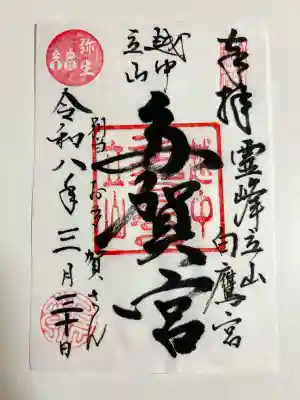 奉拝
霊峰立山
白鷹宮
越中
立山
多賀宮
別当
賀さん
令和八年三月三十日
弥生
越中
立山